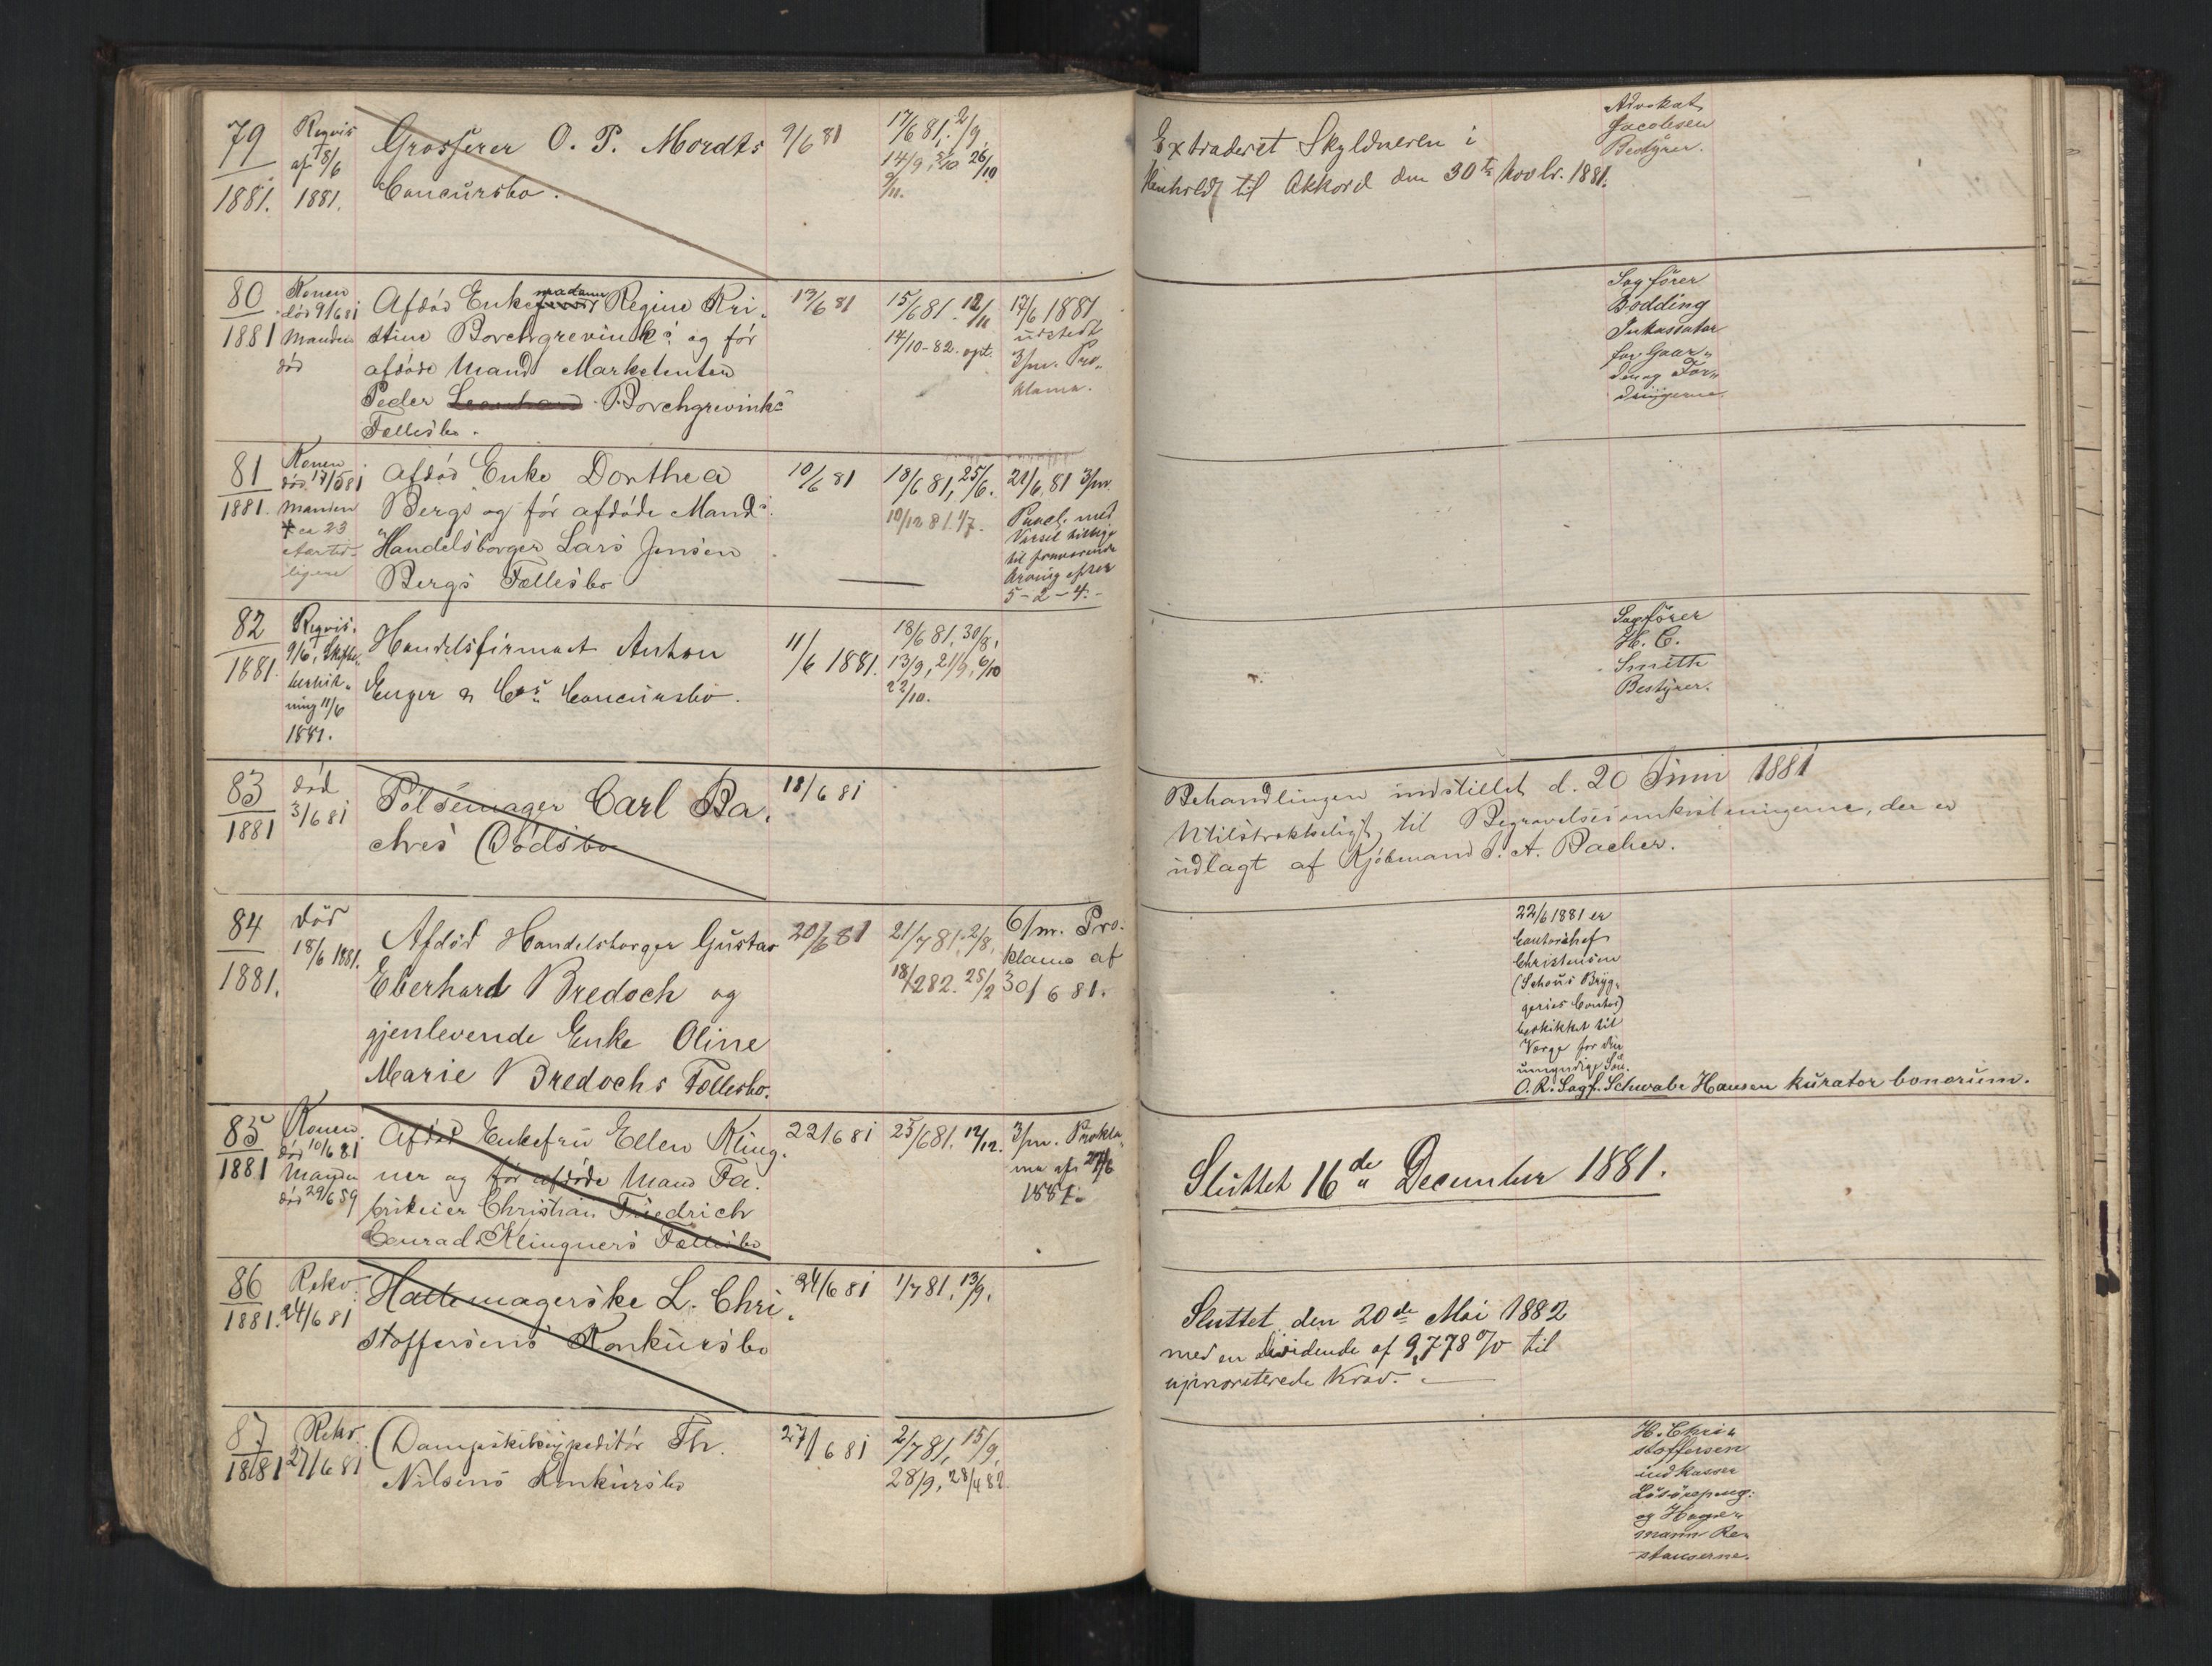 79
1881.
Reqvis
af 18/6
1881.
Grosserer O. P. Mordts
Concursbo.
9/6 81
17/6 81. 2/9
14/9, 5/10 26/10
9/11.
Extraderet Skyldneren i
Henhold til Akkord den 30te Novbr. 1881.
Advokat
Jacobsen
Bestyrer.
80
1881
Konen
død 9/6 81
Manden
død
Afdød Enkemadam Regine Kri-
stine Borchgrevinks og før
afdøde Mand Marketenter
Peder Borchgrevinks
Fællesbo.
13/6 81
15/6 81. 12/11
14/10-82. opt.
17/6 1881
udstedt
3/m. Pro-
klama.
Sagfører
Bødding
Inkassator
for Gaar-
den og For-
dringerne
81
1881.
Konen
død 17/5 81
Manden
ca 23
Aar tid-
ligere
Afdød Enke Dorthea
Bergs og før afdøde Mand
Handelsborger Lars Jensen
Bergs Fællesbo
10/6 81
18/6 81, 25/6.
10/12 81. 1/7.
22/6 81 3/m.
Procl. med
Varsel tillige
til fraværende
Arving efter
5-2-4.
82
1881.
Reqvis.
9/6, Skifte-
beslut-
ning 11/6
1881.
Handelsfirmaet Anton
Enger & Co.s Concursbo.
11/6 1881.
18/6 81, 30/8,
13/9, 21/9, 6/10
22/10.
Sagfører
H. C.
Smith
Bestyrer.
83
1881
død
3/6 81
Pølsemager Carl Ba-
chres Dødsbo
18/6 81
Behandlingen indstillet d. 20 Juni 1881
Utilstrækkeligt til Begravelsesomkostningerne, der er
udlagt af Kjøbmand S. A. Bacher.
84
1881.
død
18/6 1881.
Afdød Handelsborger Gustav
Eberhard Bredoch og
gjenlevende Enke Oline
Marie Bredochs Fællesbo.
20/6 81
21/7 81, 2/8,
18/2 82. 25/2
6/m. Pro-
klama af
30/6 81.
22/6 1881 er
Contorchef
Christensen
(Schous Bryg-
geries Contor)
beskikket til
Værge for den
umyndige Søn.
O. R. Sagf. Schwabe Hansen kurator bonorum.
85
1881
Konen
død 10/6 81
Manden
død 29/6 59
Afdød Enkefru Ellen Kling-
ner og før afdøde Mand Fa-
brikeier Christian Friedrich
Conrad Klingners Fællesbo
22/6 81
25/6 81. 12/12.
3/m. Prokla-
ma af 27/6
1881.
Sluttet 16de December 1881.
86
1881.
Rekv.
24/6 81
Hattemagerske L. Chri-
stoffersens Konkursbo
24/6 81
1/7 81, 13/9.
Sluttet den 20de Mai 1882
med en Dividende af 9,778 % til
uprioriterede Krav.
87
1881
Rekv.
27/6 81
Dampskibsexpeditør Th.
Nilsens Konkursbo
27/6 81
2/7 81, 15/9,
28/9, 28/4 82.
H. Chri-
stoffersen
indkasser
Løsørepeng.
og Hager-
mann Re-
stanserne.